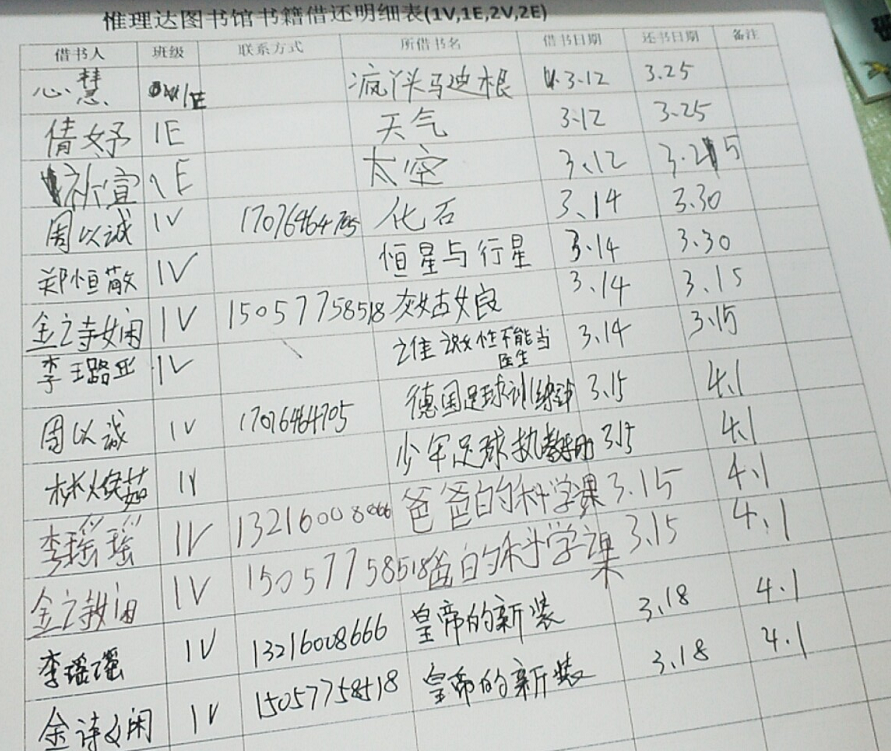 惟理达图书馆书籍借还明细表(1V,1E,2V,2E)
借书人 班级 联系方式 所借书名 借书日期 还书日期 备注
心慧 1E 疯丫头马迪根 3.12 3.25
倩妤 1E 天气 3.12 3.25
祈宜 1E 太空 3.12 3.25
周以诚 1V 17076464705 化石 3.14 3.30
郑恒敬 1V 恒星与行星 3.14 3.30
金诗娴 1V 15057758518 灰姑娘 3.14 3.15
李璐 1V 谁说女性不能当医生 3.14 3.15
周以诚 1V 17076464705 德国足球训练 3.15 4.1
林焕茹 1V 少年足球执教 3.15 4.1
李瑶瑶 1V 13216008666 爸爸的科学课 3.15 4.1
金诗娴 1V 15057758518 爸爸的科学课 3.15 4.1
李瑶瑶 1V 13216008666 皇帝的新装 3.18 4.1
金诗娴 1V 15057758518 皇帝的新装 3.18 4.1